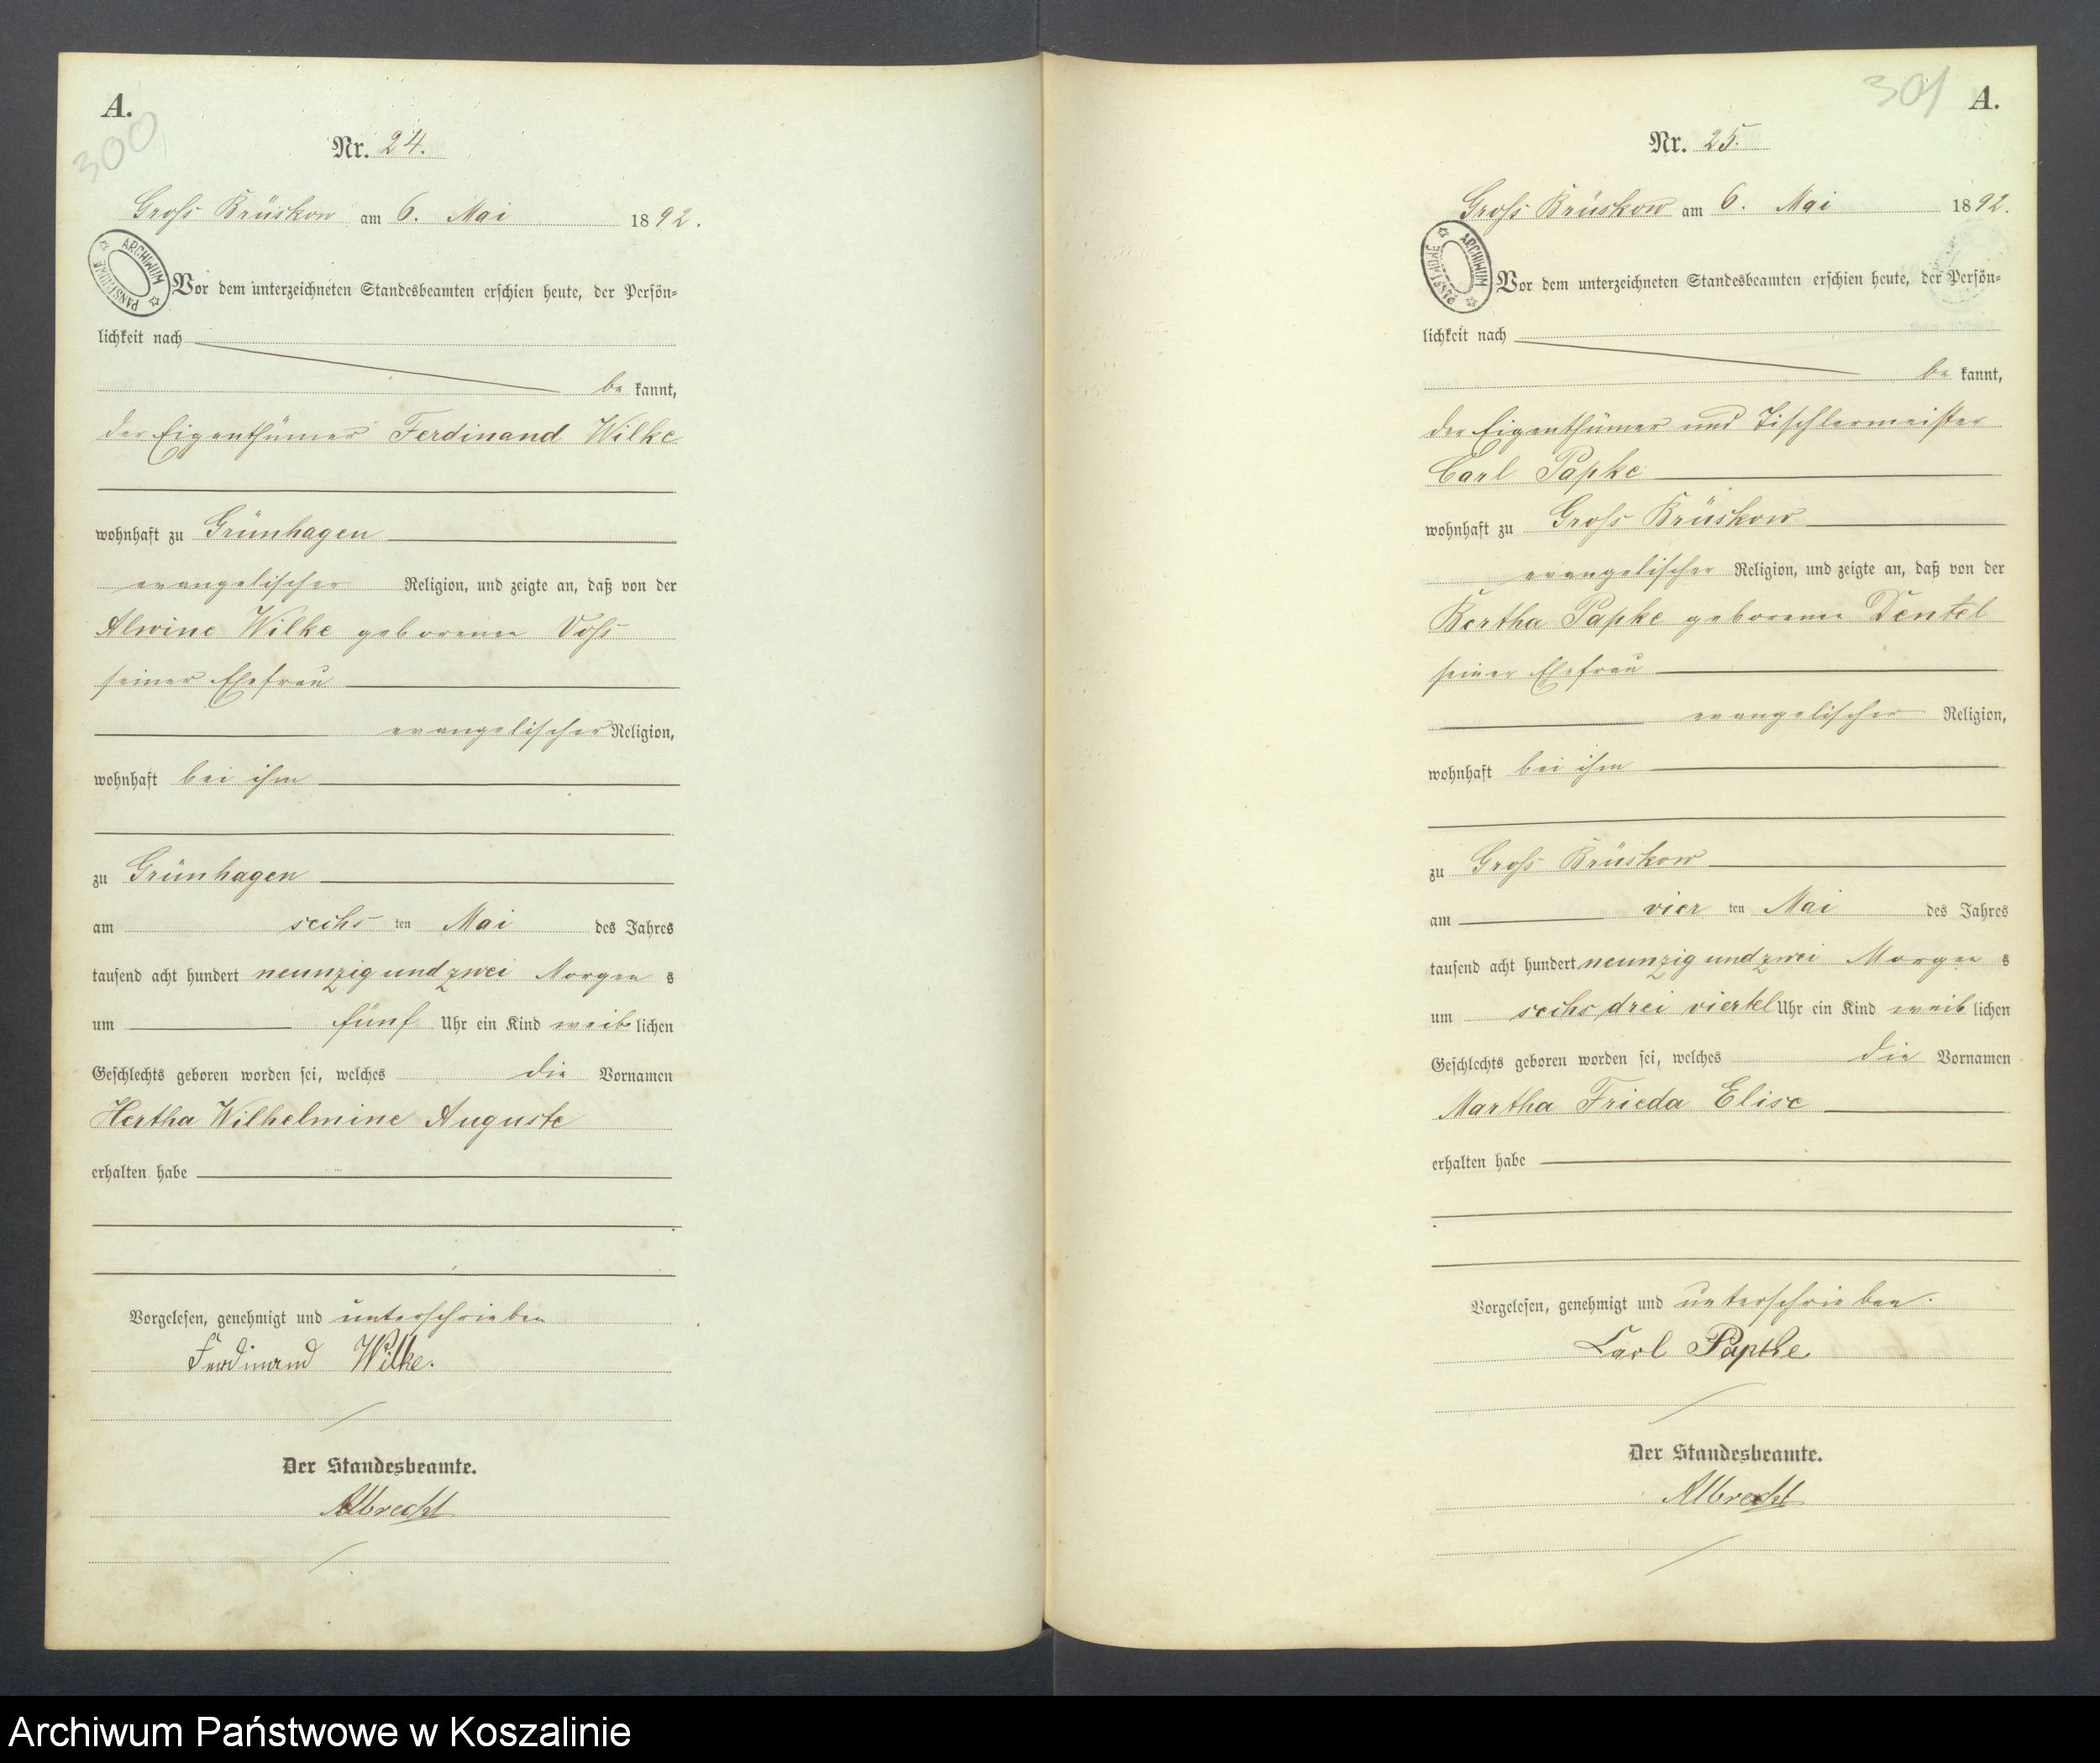 A.
300
Nr. 24.
Gross Brüskow am 6. Mai 1892.
ARCHIWUM PAŃSTWOWE
Vor dem unterzeichneten Standesbeamten erschien heute, der Persön-
lichkeit nach
be kannt,
der Eigenthümer Ferdinand Wilke
wohnhaft zu Grünhagen
evangelischer Religion, und zeigte an, daß von der
Alwine Wilke geborenen Voss
seiner Ehefrau
evangelischer Religion,
wohnhaft bei ihm
zu Grünhagen
am sechs ten Mai des Jahres
tausend acht hundert neunzig und zwei Morgen s
um fünf Uhr ein Kind weib lichen
Geschlechts geboren worden sei, welches die Vornamen
Hertha Wilhelmine Auguste
erhalten habe
Vorgelesen, genehmigt und unterschrieben
Ferdinand Wilke.
Der Standesbeamte.
Albrecht
301 A.
Nr. 25.
Gross Brüskow am 6. Mai 1892.
ARCHIWUM PAŃSTWOWE
Vor dem unterzeichneten Standesbeamten erschien heute, der Persön-
lichkeit nach
be kannt,
der Eigenthümer und Tischlermeister
Carl Papke
wohnhaft zu Gross Brüskow
evangelischer Religion, und zeigte an, daß von der
Bertha Papke geborenen Dentel
seiner Ehefrau
evangelischer Religion,
wohnhaft bei ihm
zu Gross Brüskow
am vier ten Mai des Jahres
tausend acht hundert neunzig und zwei Morgen s
um sechs drei viertel Uhr ein Kind weib lichen
Geschlechts geboren worden sei, welches die Vornamen
Martha Frieda Elise
erhalten habe
Vorgelesen, genehmigt und unterschrieben.
Carl Papke
Der Standesbeamte.
Albrecht
Archiwum Państwowe w Koszalinie